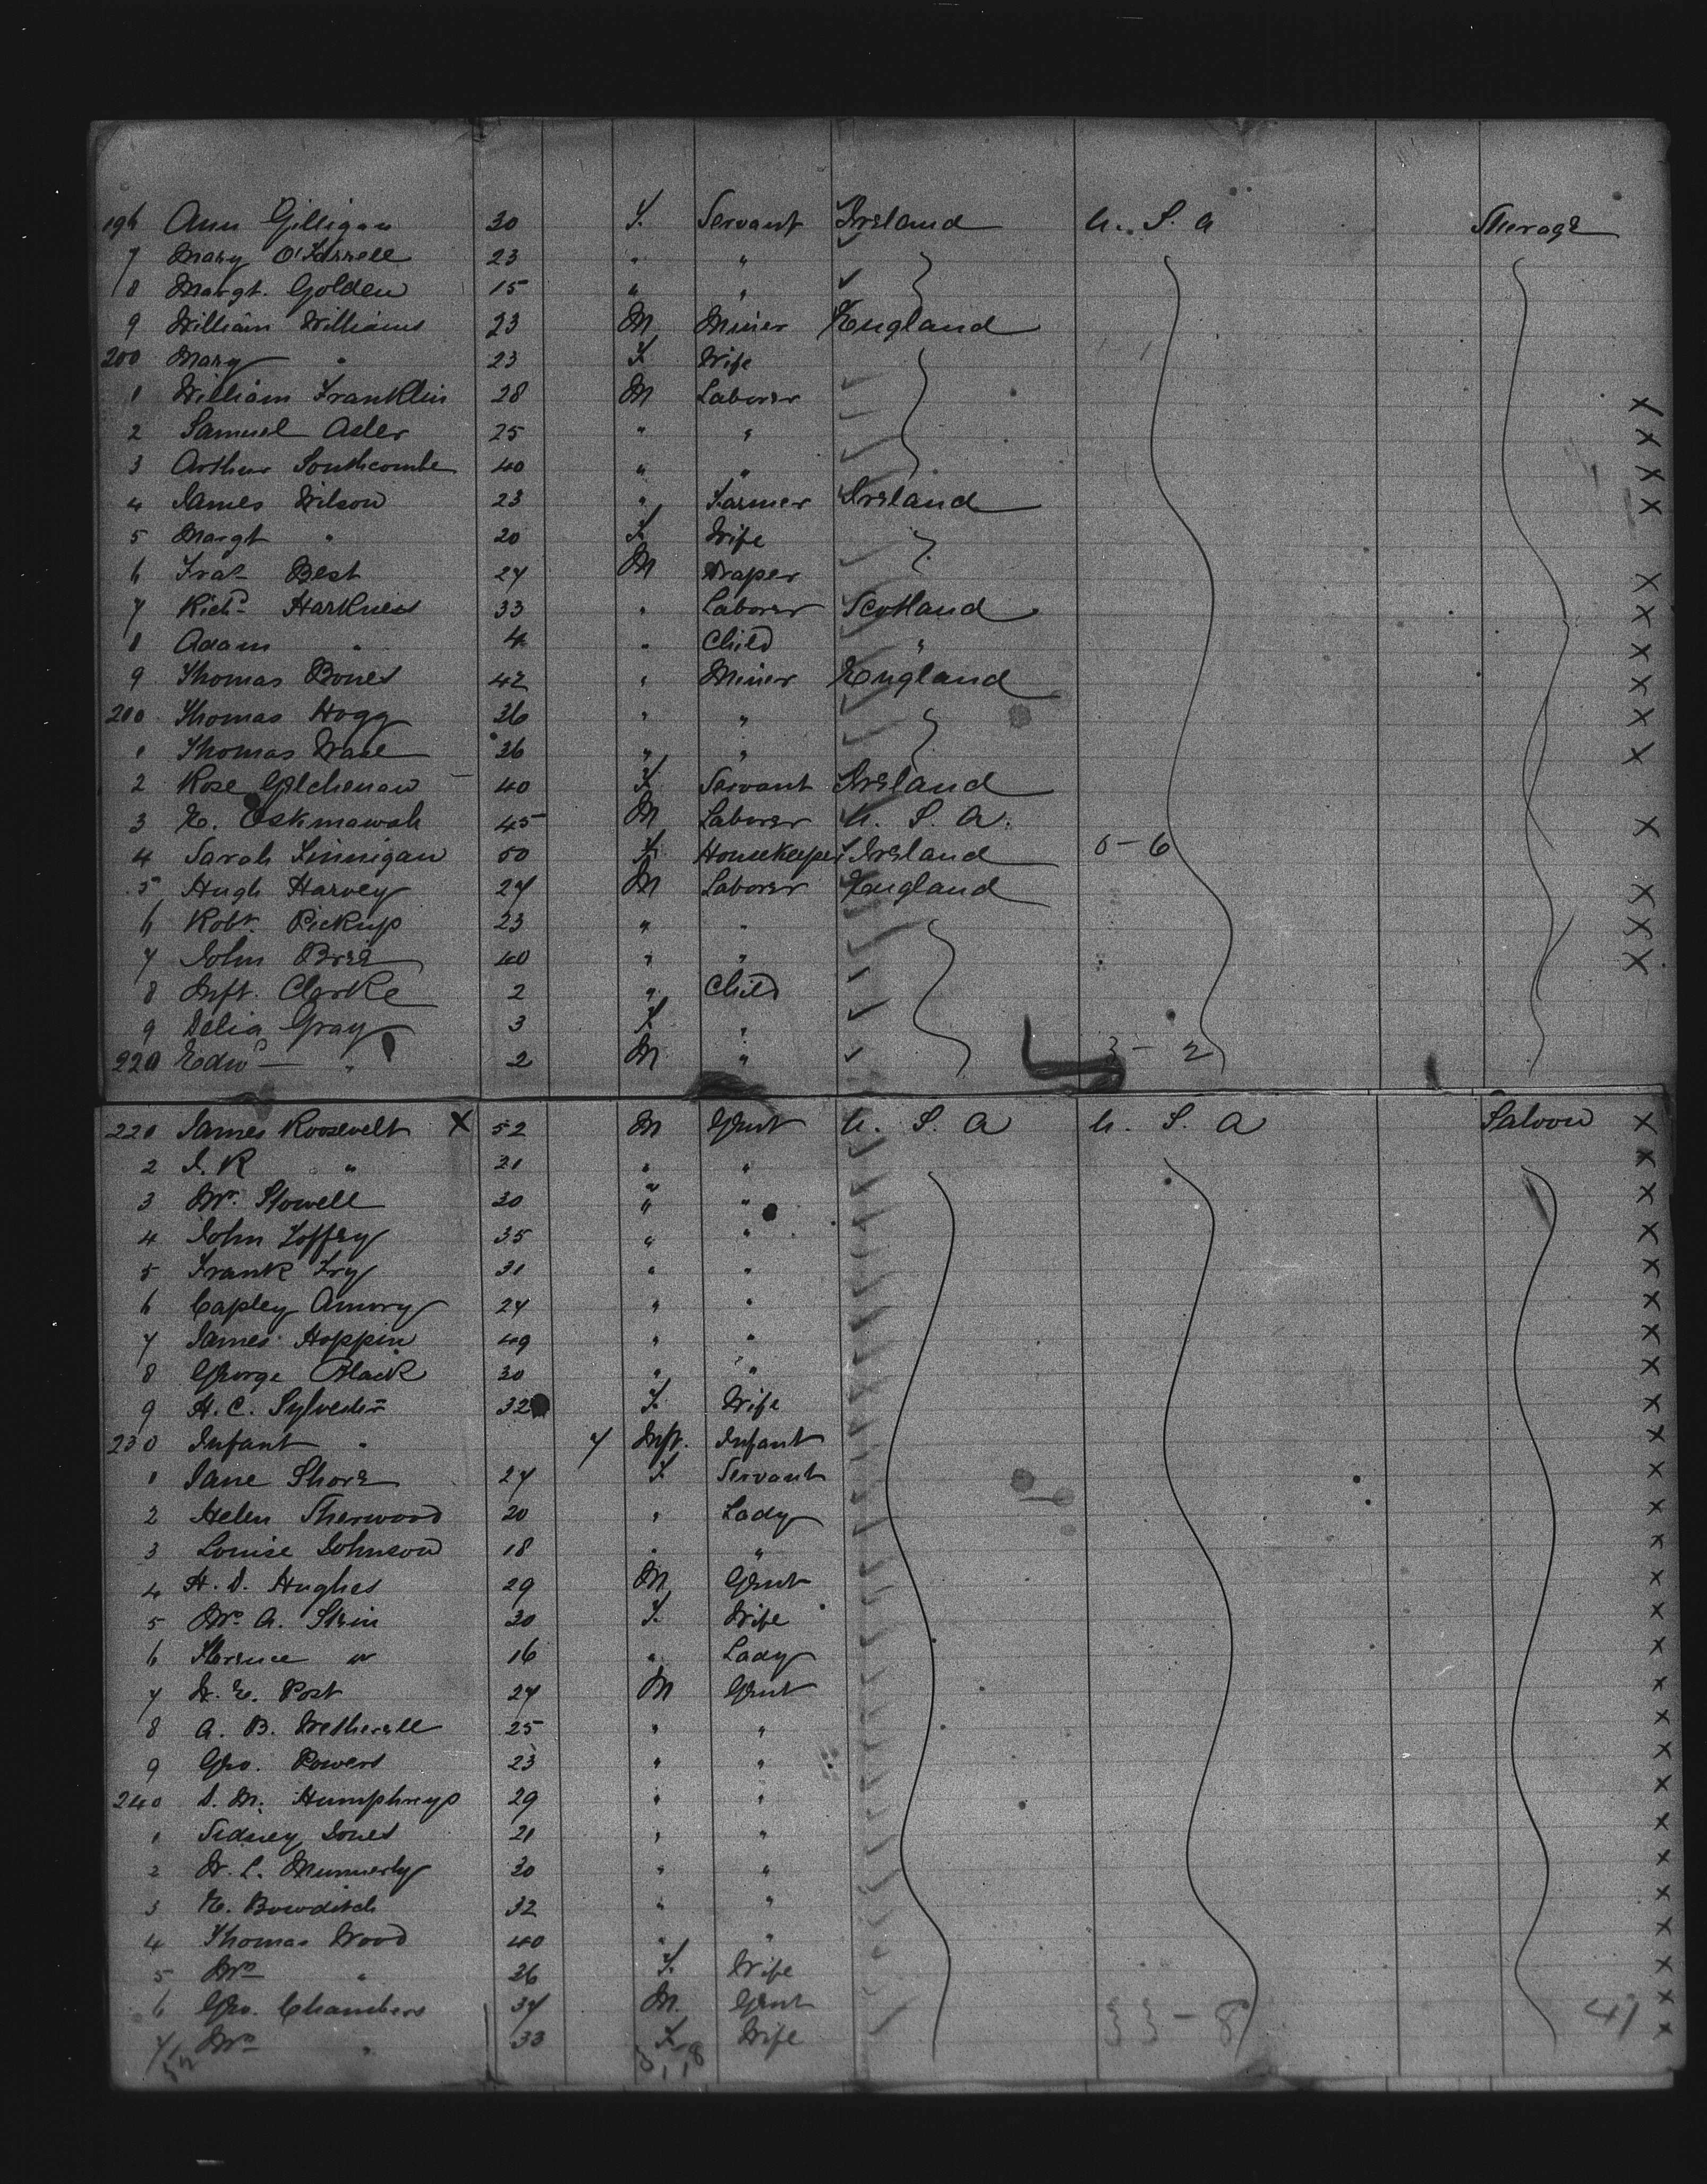 196 Ann Gilligan 30 F. Servant Ireland U. S. A Steerage
7 Mary O'Farrell 23 " "
8 Margt. Golden 15 " "
9 William Williams 23 M Miner England
200 Mary " 23 F. Wife
1 William Franklin 28 M Laborer
2 Samuel Asler 25 " "
3 Arthur Southcombe 40 " "
4 James Wilson 23 " Farmer Ireland
5 Margt " 20 F. Wife
6 Fras Best 27 M Draper
7 Richd Harkness 33 " Laborer Scotland
8 Adam " 4 " Child "
9 Thomas Bones 42 " Miner England
210 Thomas Hogg 36 " "
1 Thomas 36 " "
2 Rose 40 F. Servant Ireland
3 E. Eskmawah 45 M Laborer U. S. A.
4 Sarah Finnigan 50 F. Housekeeper Ireland 5-6
5 Hugh Harvey 27 M Laborer England
6 Robt. Pickup 23 " "
7 John Bree 40 " "
8 Inft. Clarke 2 " Child
9 Delia Gray 3 F. "
220 Edwd " 2 M " 3-2
221 James Roosevelt X 52 M Gent U. S. A U. S. A Saloon X
2 J. R " 21 " " X
3 Mr. Stowell 30 " " X
4 John 35 " " X
5 Frank Fry 31 " " X
6 Copley Amory 27 " " X
7 James Hoppin 49 " " X
8 George Black 30 " " X
9 H. C. Sylvester 32 F. Wife X
230 Infant " 7 Inft. Infant X
1 Jane Shore 27 F. Servant X
2 Helen Sherwood 20 " Lady X
3 Louise Johnson 18 " " X
4 H. D. Hughes 29 M Gent X
5 Mrs A. Stein 30 F. Wife X
6 Florence " 16 " Lady X
7 W. E. Post 27 M Gent X
8 A. B. Wetherell 25 " " X
9 Geo. Powers 23 " " X
240 D. M. Humphreys 29 " " X
1 Sidney Jones 21 " " X
2 W. L. Munnerly 30 " " X
3 E. Bowditch 32 " " X
4 Thomas Wood 40 " " X
5 Mrs " 36 F. Wife X
6 Geo. Chambers 37 M. Gent 33-8 41 X
7 Mrs " 33 F. Wife X